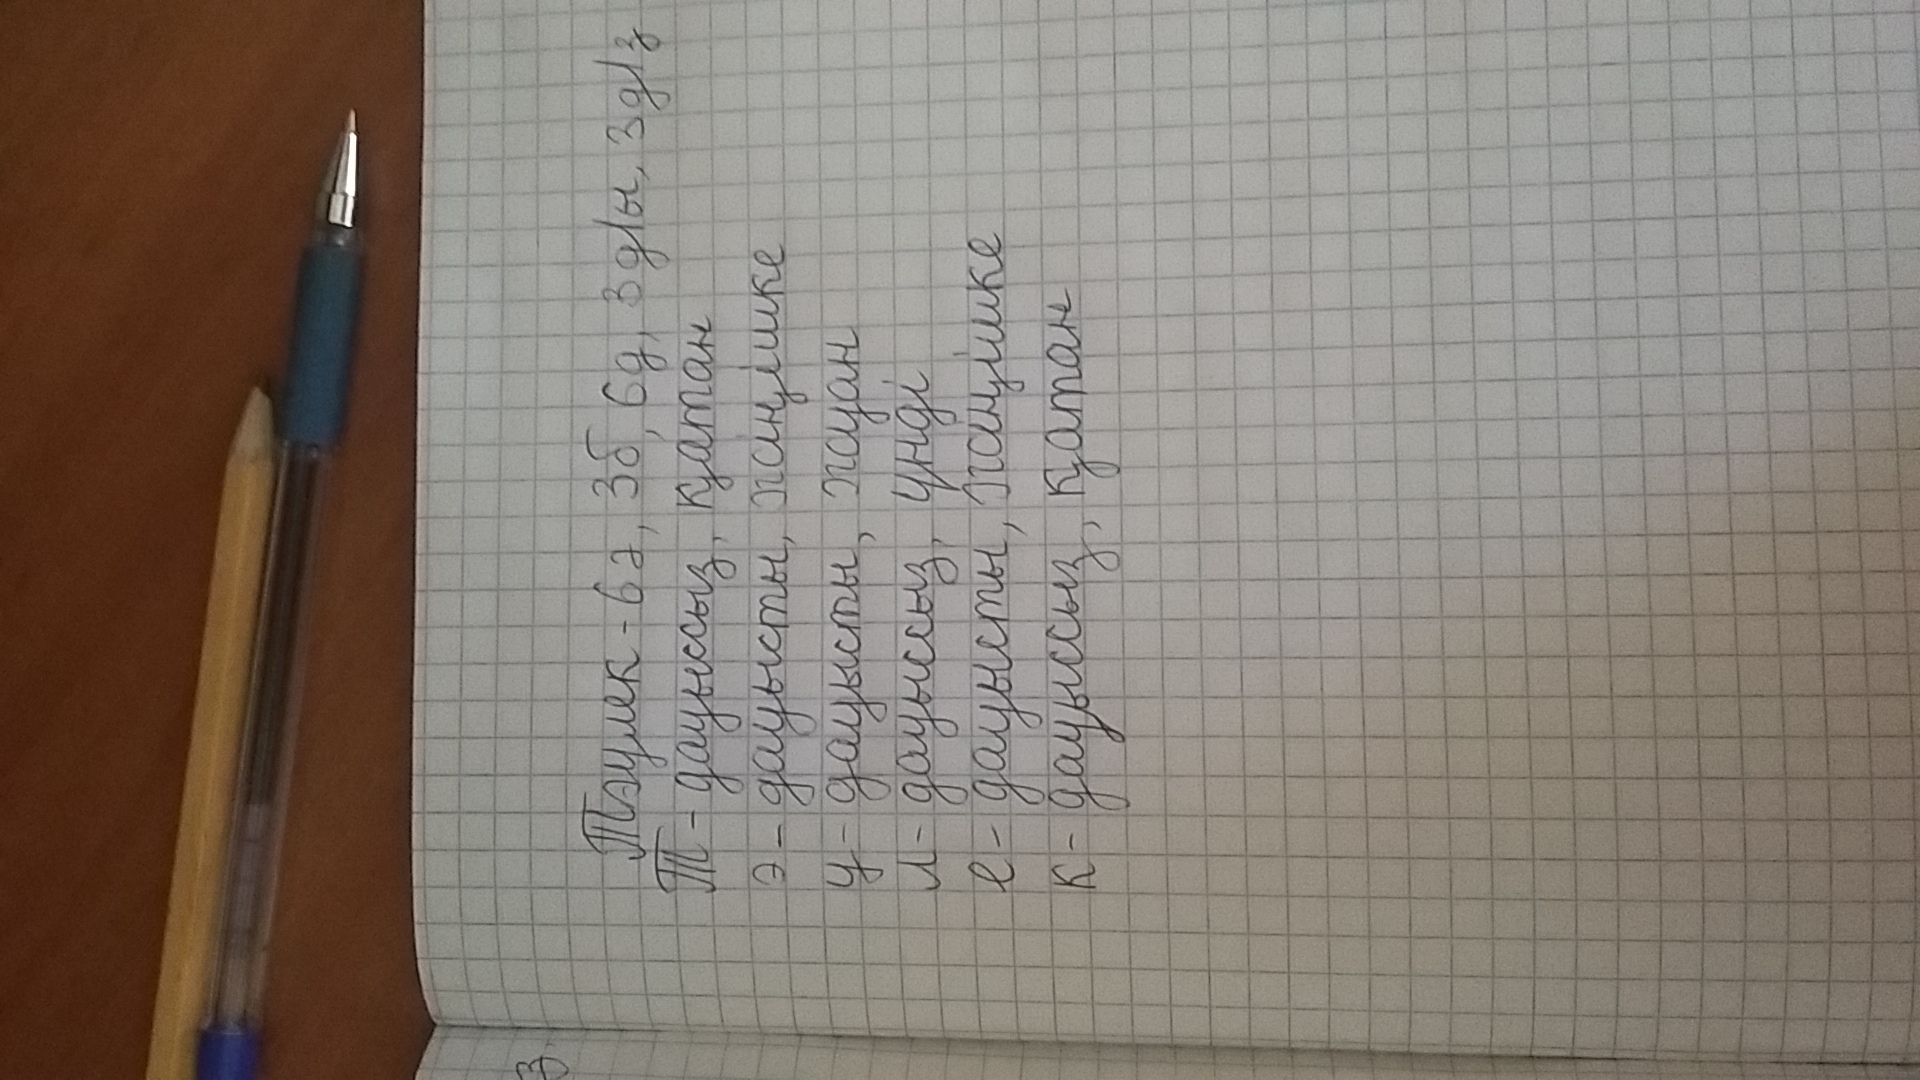 Тәулек - 6ә, 3б, 6д, 3д/ы, 3д/з
Т - дауыссыз, қатаң
ә - дауысты, жіңішке
у - дауысты, жуан
л - дауыссыз, үнді
е - дауысты, жіңішке
к - дауыссыз, қатаң
з